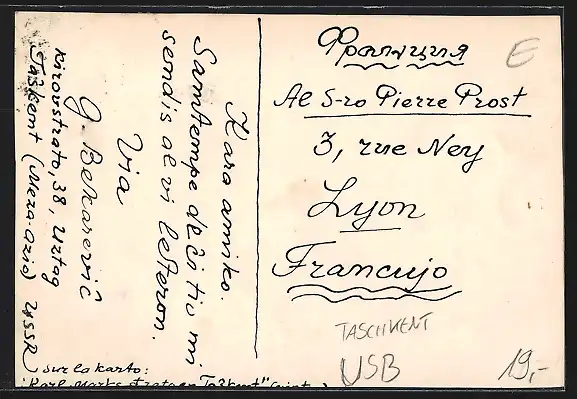 Kara amiko.
Samtempe de ĉi tiu mi
sendis al vi leteron.
Via
G. Bekarević
Kirovstrato, 38, Uztag
Taŝkent (Meza-Azio) USSR
Sur la karto:
"Karl Marks-strato en Taŝkent"
Франция
Al S-ro Pierre Prost
3, rue Ney
Lyon
Francujo
E
TASCHKENT
USB
19,-